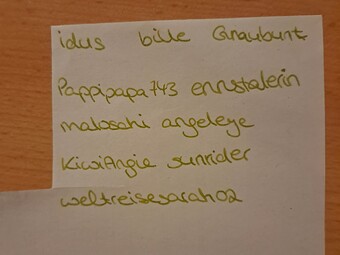 idus bille Graubunt
Pappipapa743 ennstalerin
maloschi angeleye
KiwiAngie sunrider
weltreisesarah02